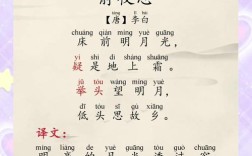 静夜思
táng lǐ bái
【唐】李白
chuáng qián míng yuè guāng
床前明月光，
yí shì dì shàng shuāng
疑是地上霜。
jǔ tóu wàng míng yuè
举头望明月，
dī tóu sī gù xiāng
低头思故乡。
译文：
míng liàng de yuè guāng tòu guò chuāng
明亮的月光透过窗